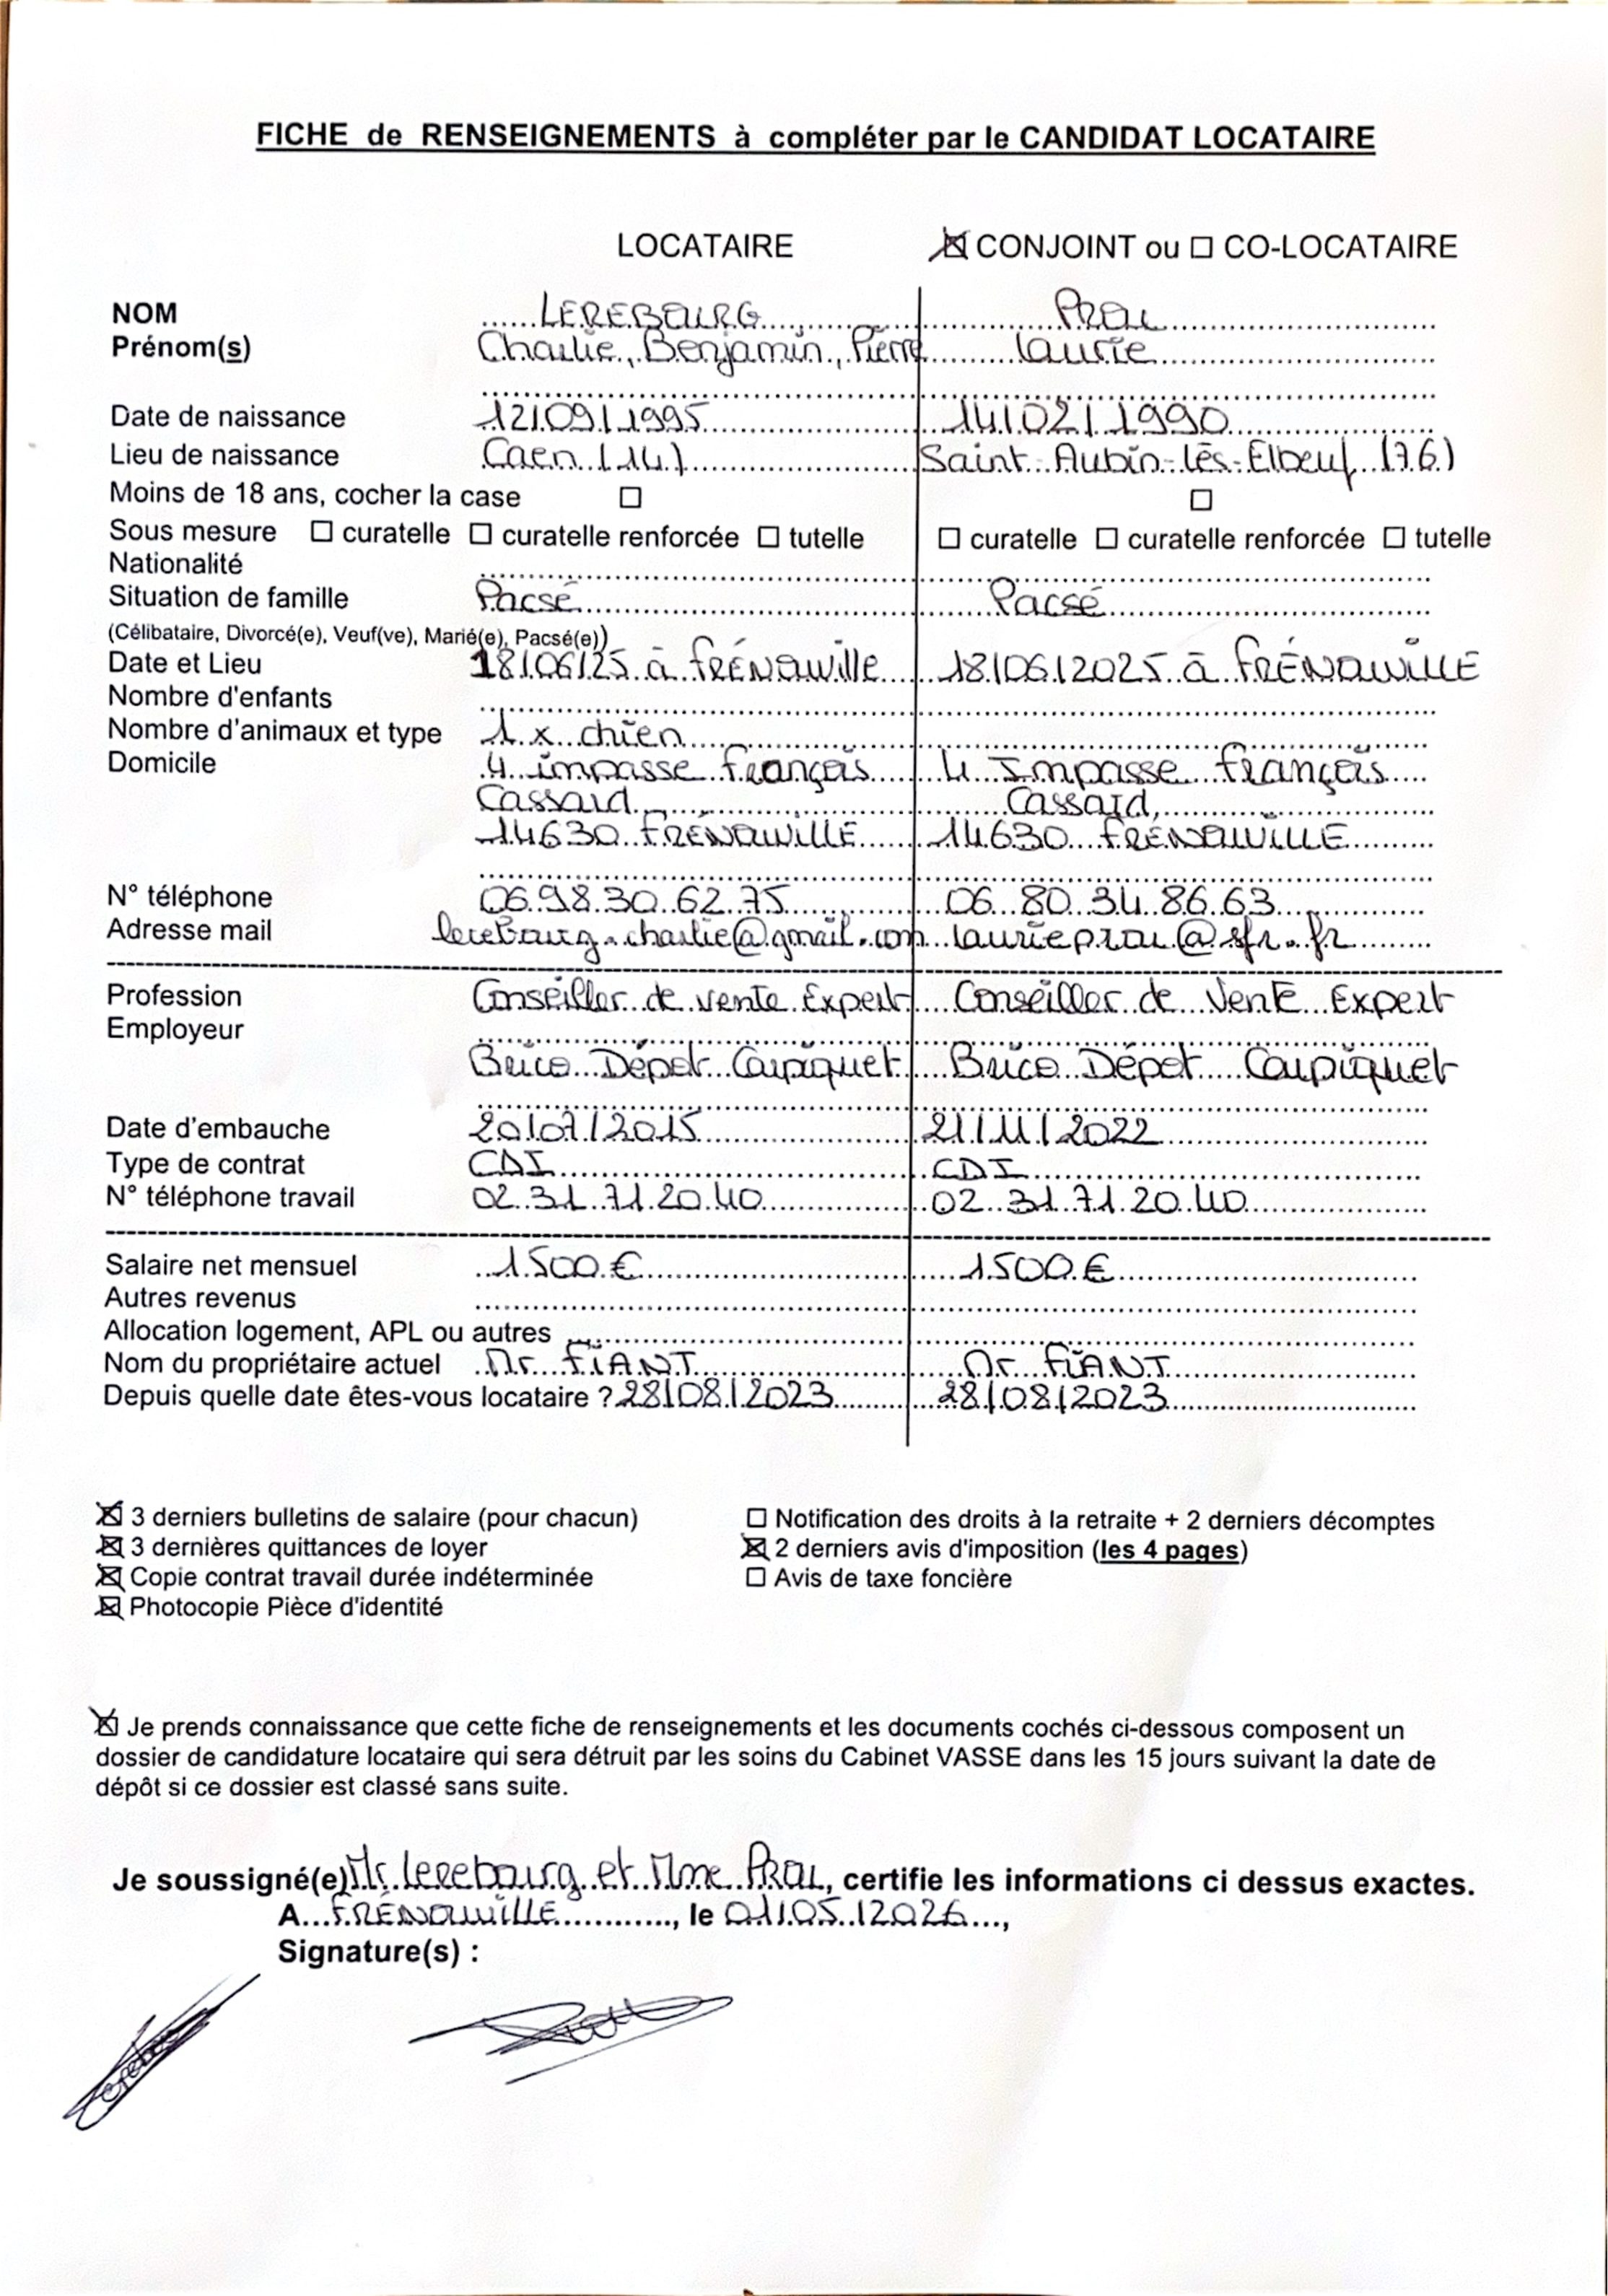 FICHE de RENSEIGNEMENTS à compléter par le CANDIDAT LOCATAIRE
LOCATAIRE ☒ CONJOINT ou ☐ CO-LOCATAIRE
NOM LEREBOURG PROU
Prénom(s) Charlie, Benjamin, Pierre Laurie
Date de naissance 12/09/1995 14/02/1990
Lieu de naissance Caen (14) Saint-Aubin-lès-Elbeuf (76)
Moins de 18 ans, cocher la case ☐ ☐
Sous mesure ☐ curatelle ☐ curatelle renforcée ☐ tutelle ☐ curatelle ☐ curatelle renforcée ☐ tutelle
Nationalité
Situation de famille Pacsé Pacsé
(Célibataire, Divorcé(e), Veuf(ve), Marié(e), Pacsé(e))
Date et Lieu 18/06/25 à FRÉNOUville 18/06/2025 à FRÉNOUVILLE
Nombre d'enfants
Nombre d'animaux et type 1 x chien
Domicile 4 impasse François 4 Impasse François
Cassard, Cassard,
14630 FRÉNOUVILLE 14630 FRÉNOUVILLE
N° téléphone 06.98.30.62.75 06 80 34 86 63
Adresse mail lerebourg.charlie@gmail.com laurieprou@sfr.fr
Profession Conseiller de vente Expert Conseiller de Vente Expert
Employeur
Brico Dépôt Carpiquet Brico Dépôt Carpiquet
Date d'embauche 20/07/2015 21/11/2022
Type de contrat CDI CDI
N° téléphone travail 02.31.71.20.40 02 31.71.20.40
Salaire net mensuel 1500 € 1500 €
Autres revenus
Allocation logement, APL ou autres
Nom du propriétaire actuel Mr FIANT Mr FIANT
Depuis quelle date êtes-vous locataire ? 28/08/2023 28/08/2023
☒ 3 derniers bulletins de salaire (pour chacun) ☐ Notification des droits à la retraite + 2 derniers décomptes
☒ 3 dernières quittances de loyer ☒ 2 derniers avis d'imposition (les 4 pages)
☒ Copie contrat travail durée indéterminée ☐ Avis de taxe foncière
☒ Photocopie Pièce d'identité
☒ Je prends connaissance que cette fiche de renseignements et les documents cochés ci-dessous composent un
dossier de candidature locataire qui sera détruit par les soins du Cabinet VASSE dans les 15 jours suivant la date de
dépôt si ce dossier est classé sans suite.
Je soussigné(e) Mr Lerebourg et Mme PROU, certifie les informations ci dessus exactes.
A FRÉNOUVILLE, le 01/05/2026,
Signature(s) :